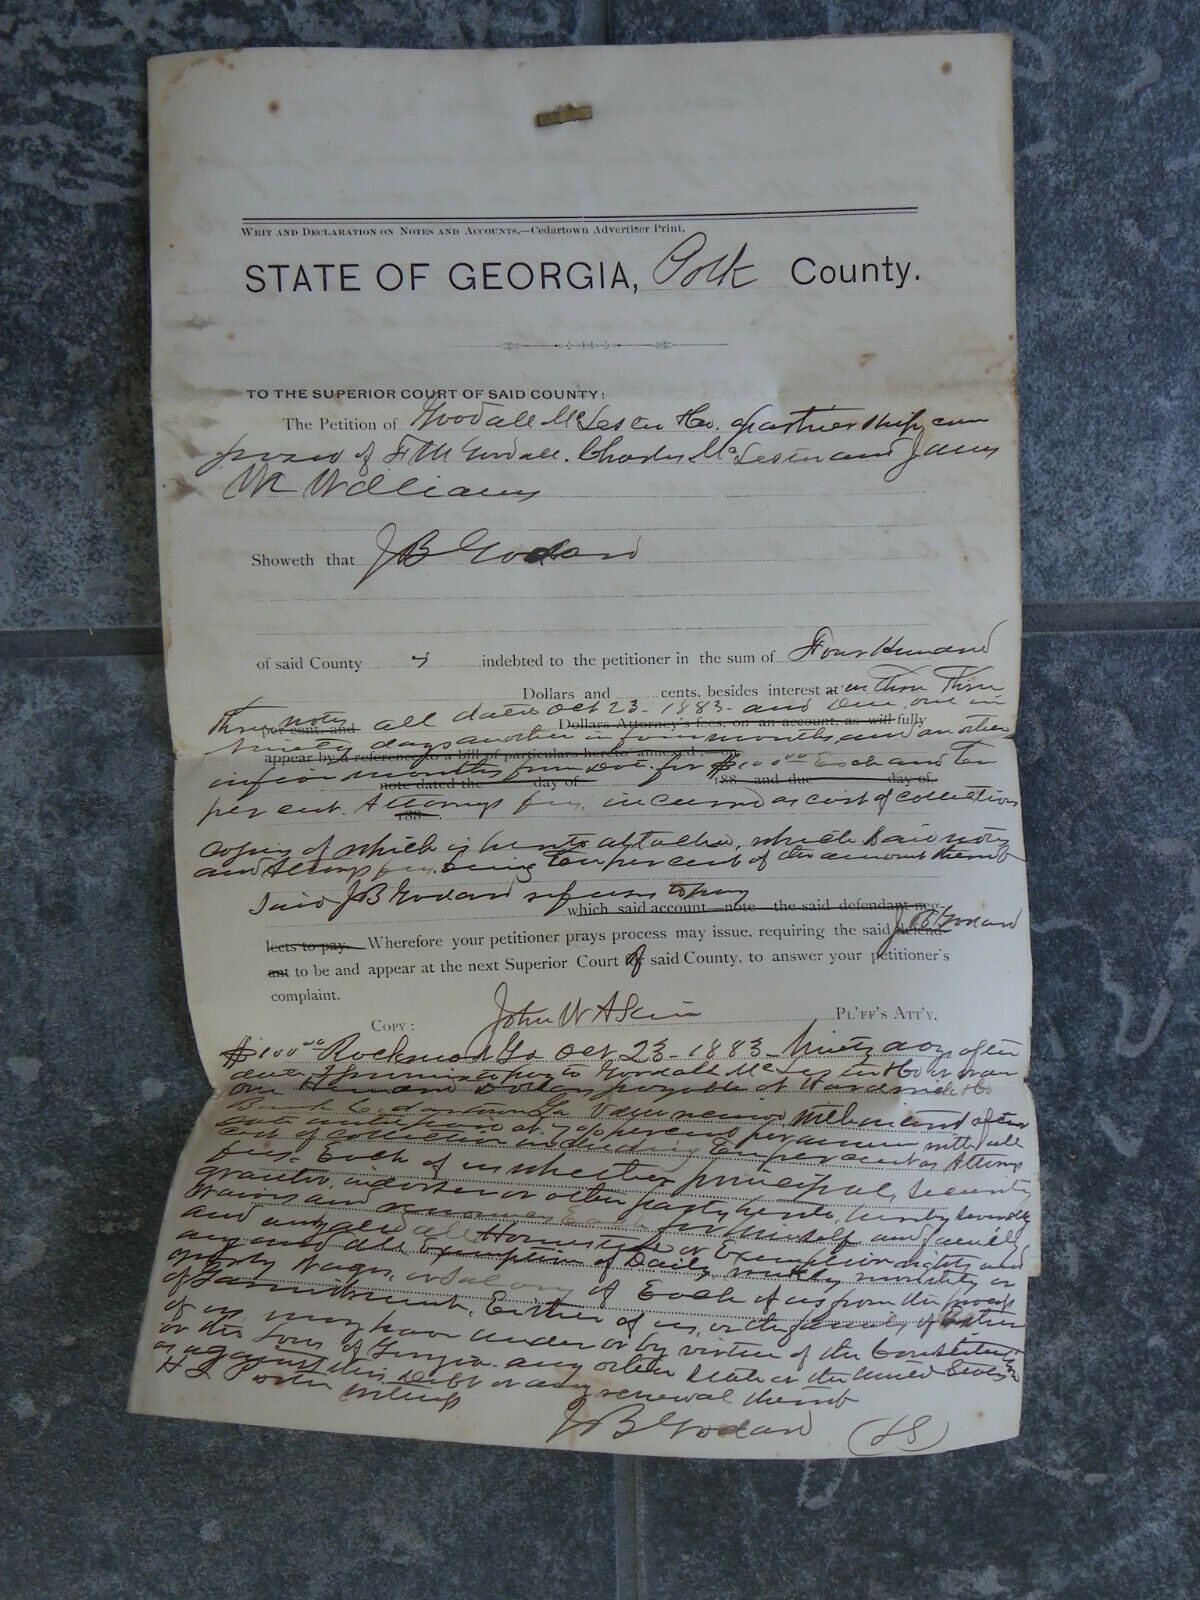 WRIT AND DECLARATION ON NOTES AND ACCOUNTS.—Cedartown Advertiser Print.
STATE OF GEORGIA, Polk County.
TO THE SUPERIOR COURT OF SAID COUNTY:
The Petition of Woodall McLester & Co. a partnership, com
posed of F M Woodall, Charles McLester and James
W Williams
Showeth that J B Godard
of said County is indebted to the petitioner in the sum of Four Hundred
Dollars and cents, besides interest at on Three
per cent. and notes all dated Oct 23 - 1883 - and Due one in
Dollars Attorney's fees, on an account, as will fully
Ninety days another in four months and another
appear by a reference to a bill of particulars hereto annexed, on
in months from Date for $100.00 Each and Ten
note dated the day of 188 and due day of
per cent. Attorneys fees, incurred as cost of collection
188
Copies of which is hereto attached, which said notes
and Attorneys fees being Ten per cent of the amount thereof
Said J B Godard refuses to pay
which said account note the said defendant neg-
lects to pay. Wherefore your petitioner prays process may issue, requiring the said defend- J B Godard
ant to be and appear at the next Superior Court of said County, to answer your petitioner's
complaint.
COPY: John W PL'FF'S ATT'Y.
$100.00 Rockmart Ga Oct 23 - 1883 - Ninety days after
date I promise to pay to Woodall McLester & Co or order
One Hundred Dollars payable at & Co
Bank Cedartown Ga Value received, with interest after
date until paid at per cent per annum with all
cost of collection including Ten per cent as Attorneys
fees. Each of us whether principal, Security
grantor, indorser or other party hereto, hereby severally
Waives and renounces Each for himself and family
and any and all Homestead or Exemption rights and
any and all Exemption of Daily, weekly, monthly or
yearly Wages, or Salary of Each of us from the process
of Garnishment, Either of us, or the family of Either
of us may have under or by virtue of the Constitution
or the Laws of Georgia any other State or the United States
as against this Debt or any renewal thereof
H L Porter Witness
J B Godard (LS)